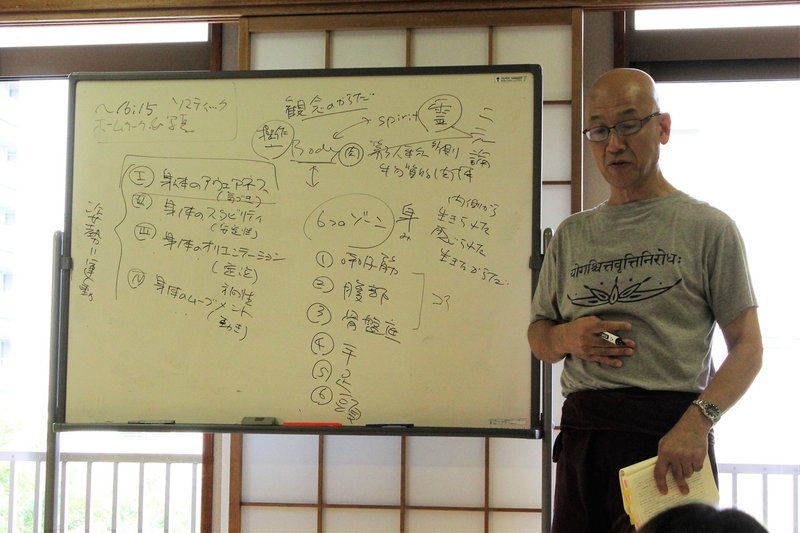 ～16:15 ソマティック
ホームワーク&写真
観念のからだ
操作 Body
spirit 霊
二元論
肉
姿勢に運動
Ⅰ 身体のアウェアネス
(気づき)
Ⅱ 身体のスタビリティ
(安定性)
Ⅲ 身体のオリエンテーション
(定位)
Ⅳ 身体のムーブメント
(動き)
6つのゾーン
① 呼吸筋
② 腹部
③ 骨盤底
④ 手
⑤ 足
⑥ 頭
コア
身
み
内側から
生きられた
感じられた
生きたからだ
योगश्चित्तवृत्तिनिरोधः